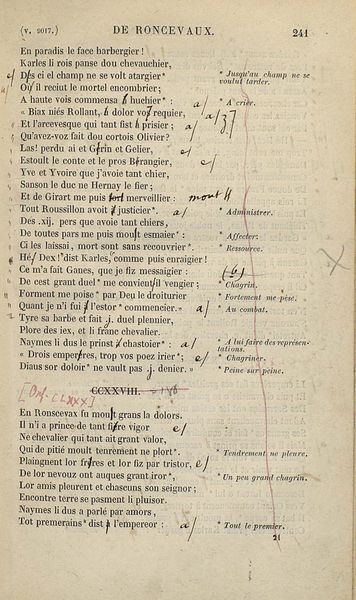 (v. 9017.) DE RONCEVAUX. 241
En paradis le face harbergier !
Karles li rois panse dou chevauchier,
Dès ci el champ ne se volt atargier* * Jusqu'au champ ne se voulut tarder.
Où il reciut le mortel encombrier ;
A haute vois commensa à huchier* : a/ * A crier.
« Biax niés Rollant, à dolor vos requier, a/ 3/
Et l'arcevesque qui tant fist à prisier ; a/
Qu'avez-voz fait dou cortois Olivier ?
Las ! perdu ai et Gerin et Gelier, e/
Estoult le conte et le pros Berangier, e/
Yve et Yvoire que j'avoie tant chier,
Sanson le duc ne Hernay le fier ;
Et de Girart me puis tot merveillier : mout H
Tout Roussillon avoit à justicier*. a/ * Administrer.
Des .xij. pers que avoie tant chiers,
De toutes pars me puis moult esmaier* : * Affecter.
Ci les laissai, mort sans recouvrier*. * Ressource.
Hé, Dex ! dist Karles, comme puis enraigier !
Ce m'a fait Ganes, que je fiz messaigier : (6)
De cest grant duel* me convient il vengier ; * Chagrin.
Forment me poise* par Deu le droiturier * Fortement me pèse.
Quant je n'i fui à l'estor* commencier. » a/ * Au combat.
Tyre sa barbe et fait .j. duel plennier,
Plore des iex, et li franc chevalier.
Naymes li dus le prinst à chastoier* : a/ * A lui faire des représentations.
« Drois emperères, trop vos poez irier* ; e/ * Chagriner.
Diaus sor doloir* ne vault pas .j. denier. » * Peine sur peine.
CCXXVIII.
[Oxf. CLXXX]
En Ronscevax fu moult grans la dolors.
Il n'i a prince de tant fière vigor e/
Ne chevalier qui tant ait grant valor,
Qui de pitié moult tenrement ne plort*. * Tendrement ne pleure.
Plaingnent lor frères et lor fiz par tristor, e/
De lor nevouz ont auques grant iror*, * Un peu grand chagrin.
Lor amis pleurent et chascuns son seignor ;
Encontre terre se pasment li pluisor.
Naymes li dus a parlé par amors,
Tot premerains* dist à l'empereor : a/ * Tout le premier.
21